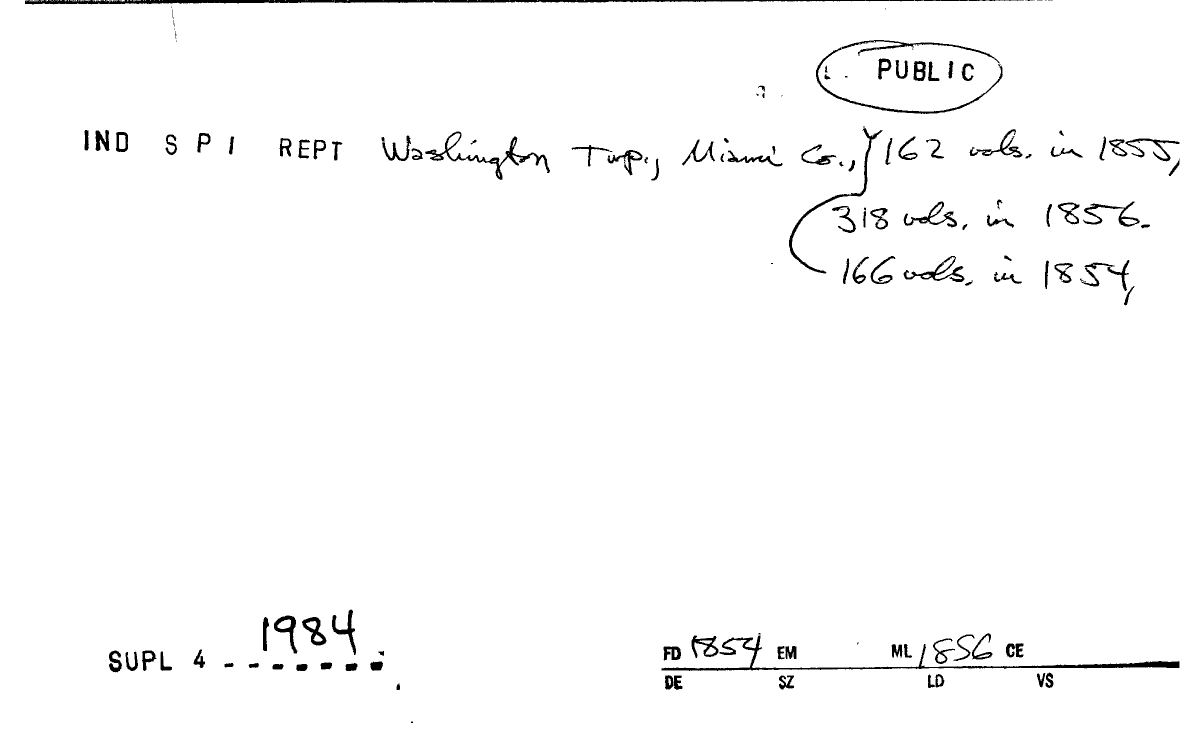 PUBLIC
IND S P I REPT Washington Twp., Miami Co., 162 vols. in 1855,
318 vols. in 1856.
166 vols. in 1854,
1984
SUPL 4 -------
FD 1854 EM ML 1856 CE
DE SZ LD VS